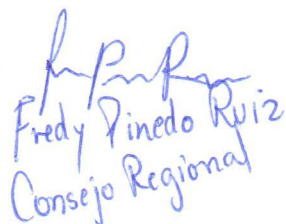 Fredy Pinedo Ruiz
Consejo Regional